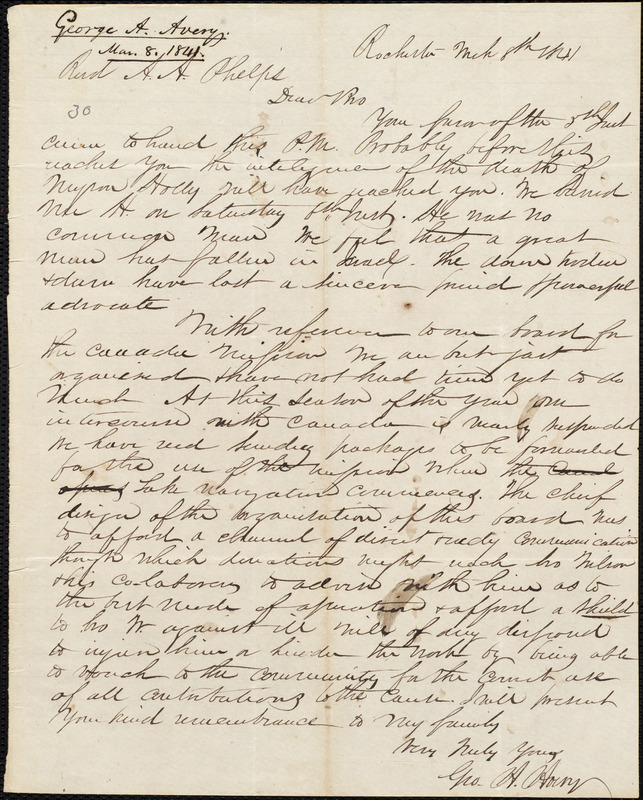 George A. Avery.
Mar. 8, 1841.
Rochester Mch 8th 1841
Revd A. A. Phelps
30
Dear Bro
Your favor of the 5th Inst
came to hand this P.M. Probably before this
reaches you the inteligence of the death of
Myron Holly will have reached you. We buried
Mr H. on Saturday 6th Inst. He was no
common man We feel that a great
man has fallen in Israel. The down troden
& dum have lost a sincere friend & powerful
advocate
With reference to our board for
the canada Mission We are but just
organized & have not had time yet to do
Much At this season of the year our
intercourse with Canada is nearly suspended
We have recd sundry packages to be forwarded
for the use of the mission when the Canal
opens Lake navigation commences. The chief
design of the organization of this board was
to afford a channel of direct ready communication
through which donations might reach bro Wilson
& his co-laborers to advise with him as to
the best mode of operation & afford a shield
to bro W. against ill will of any disposed
to injure him or hinder the work by being able
to vouch to the community for the correct use
of all contributions to the cause. I will present
Your kind remembrance to my family
Very Truly Yours
Geo. A. Avery